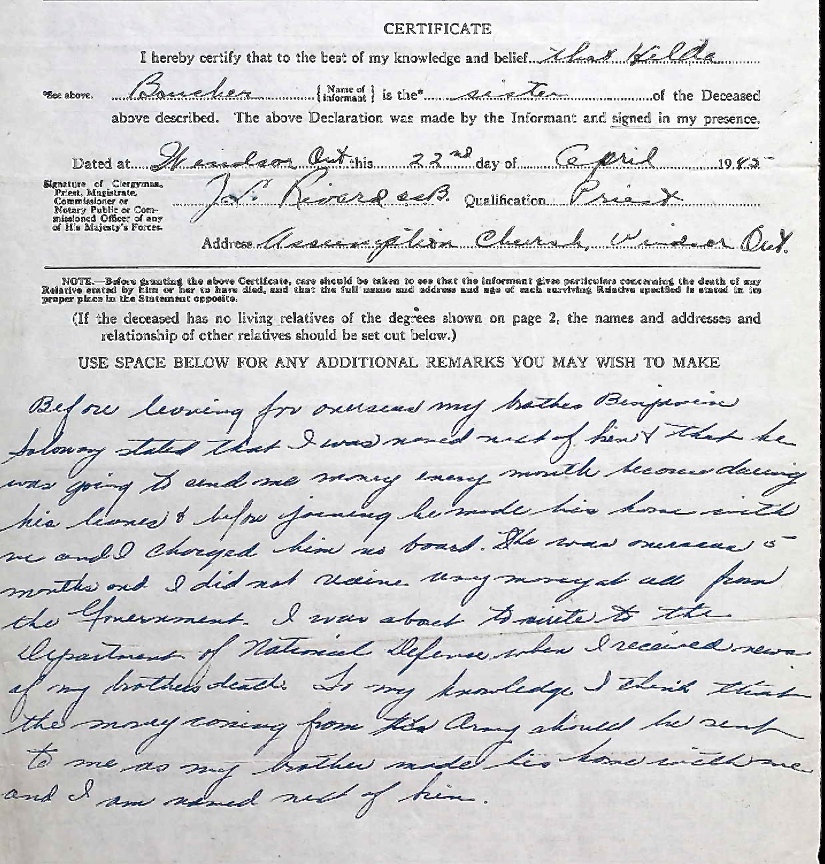 CERTIFICATE
I hereby certify that to the best of my knowledge and belief that Hilda
*See above. Boucher {Name of Informant} is the* sister of the Deceased
above described. The above Declaration was made by the Informant and signed in my presence.
Dated at Windsor Ont this 22nd day of April 1945
Signature of Clergyman,
Priest, Magistrate,
Commissioner or
Notary Public or Com-
missioned Officer of any
of His Majesty's Forces.
Rivard csB. Qualification Priest
Address Assumption Church, Windsor Ont.
NOTE.—Before granting the above Certificate, care should be taken to see that the informant gives particulars concerning the death of any
Relative stated by him or her to have died, and that the full name and address and age of each surviving Relative specified is stated in its
proper place in the Statement opposite.
(If the deceased has no living relatives of the degrees shown on page 2, the names and addresses and
relationship of other relatives should be set out below.)
USE SPACE BELOW FOR ANY ADDITIONAL REMARKS YOU MAY WISH TO MAKE
Before leaving for overseas my brother Benjamin
Soloway stated that I was named next of kin & that he
was going to send me money every month because during
his leaves & before joining he made his home with
me and I charged him no board. He was overseas 5
months and I did not recieve any money at all from
the Government. I was about to write to the
Department of National Defense when I received news
of my brothers death. To my knowledge I think that
the money coming from the Army should be sent
to me as my brother made his home with me
and I am named next of kin.